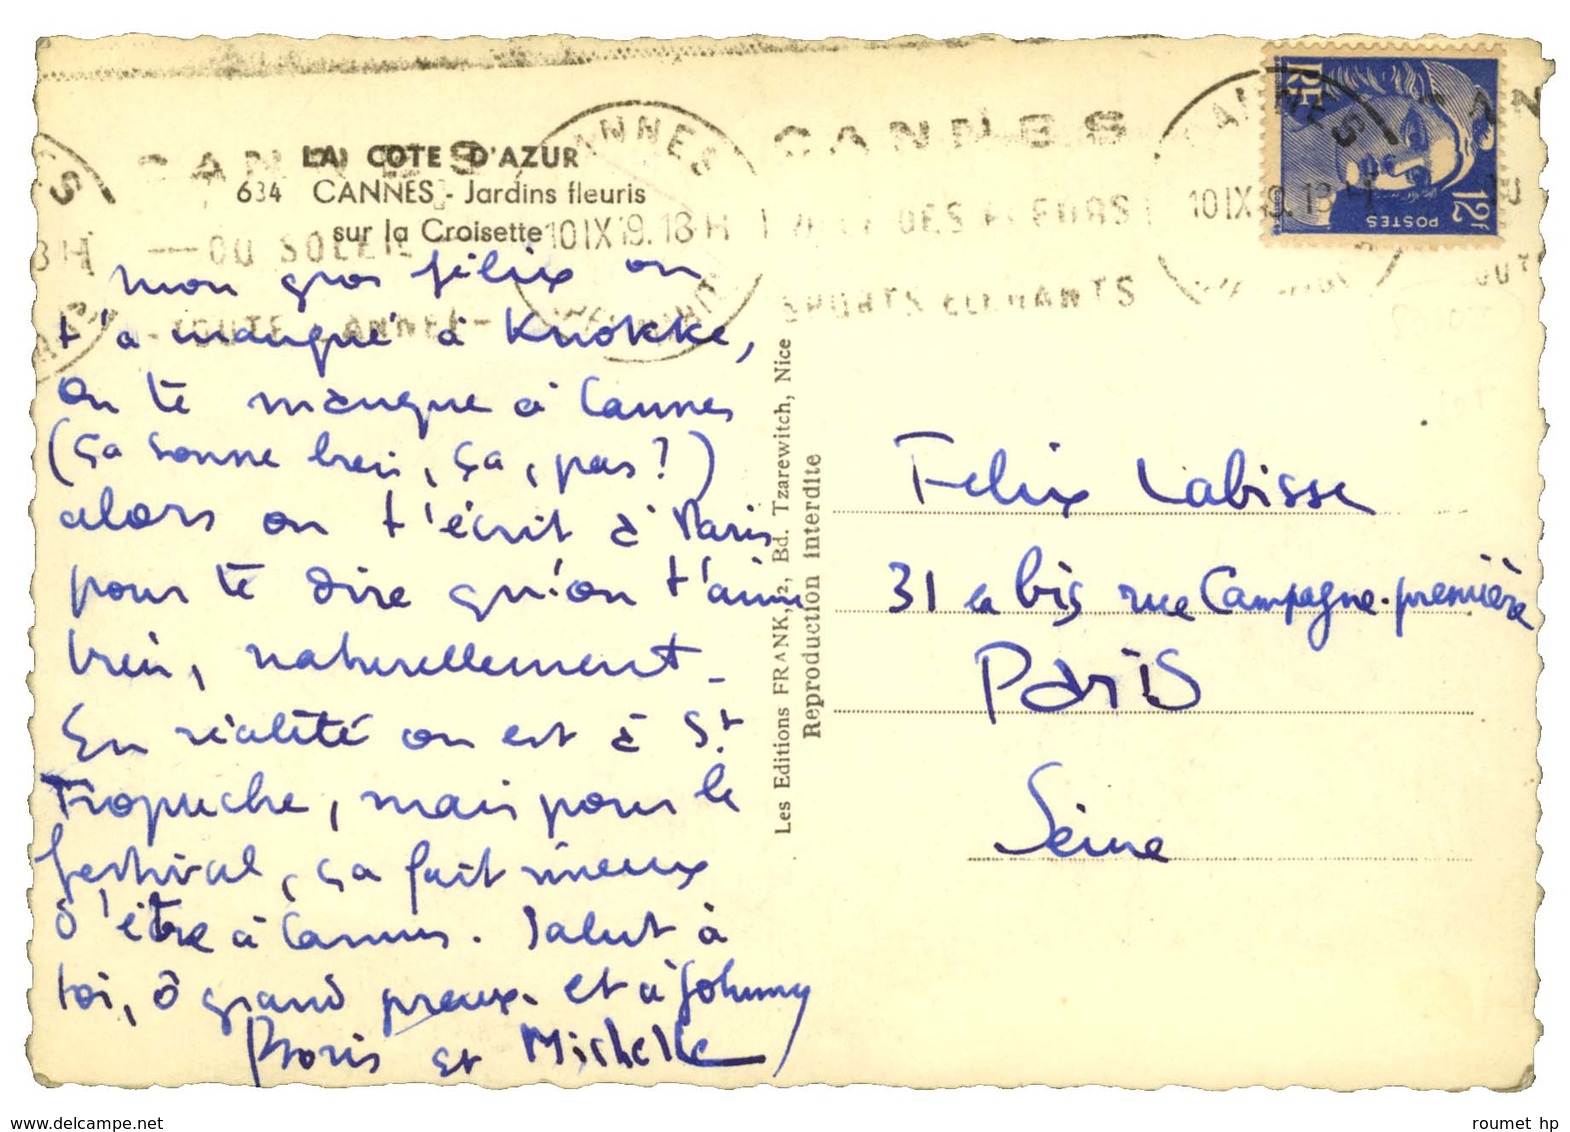 LA COTE D'AZUR
634 CANNES - Jardins fleuris
sur la Croisette
CANNES
DU SOLEIL
TOUTE L'ANNEE
CANNES
10 IX 19. 18H
CANNES
VILLE DES FLEURS
SPORTS ELEGANTS
CANNES
10 IX 19. 18H
RF
POSTES
12F
mon gros félix on
t'a manqué à Knokke,
on te manque à Cannes
(ça sonne bien, ça, pas ?)
alors on t'écrit à Paris
pour te dire qu'on t'aime
bien, naturellement -
En réalité on est à St
Tropuche, mais pour le
festival, ça fait mieux
d'être à Cannes. Salut à
toi, ô grand preux. et à Johnny
Boris et Michelle
Les Editions FRANK, 2, Bd. Tzarewitch, Nice
Reproduction interdite
Felix Labisse
31 bis rue Campagne-première
Paris
Seine
www.delcampe.net
roumet hp